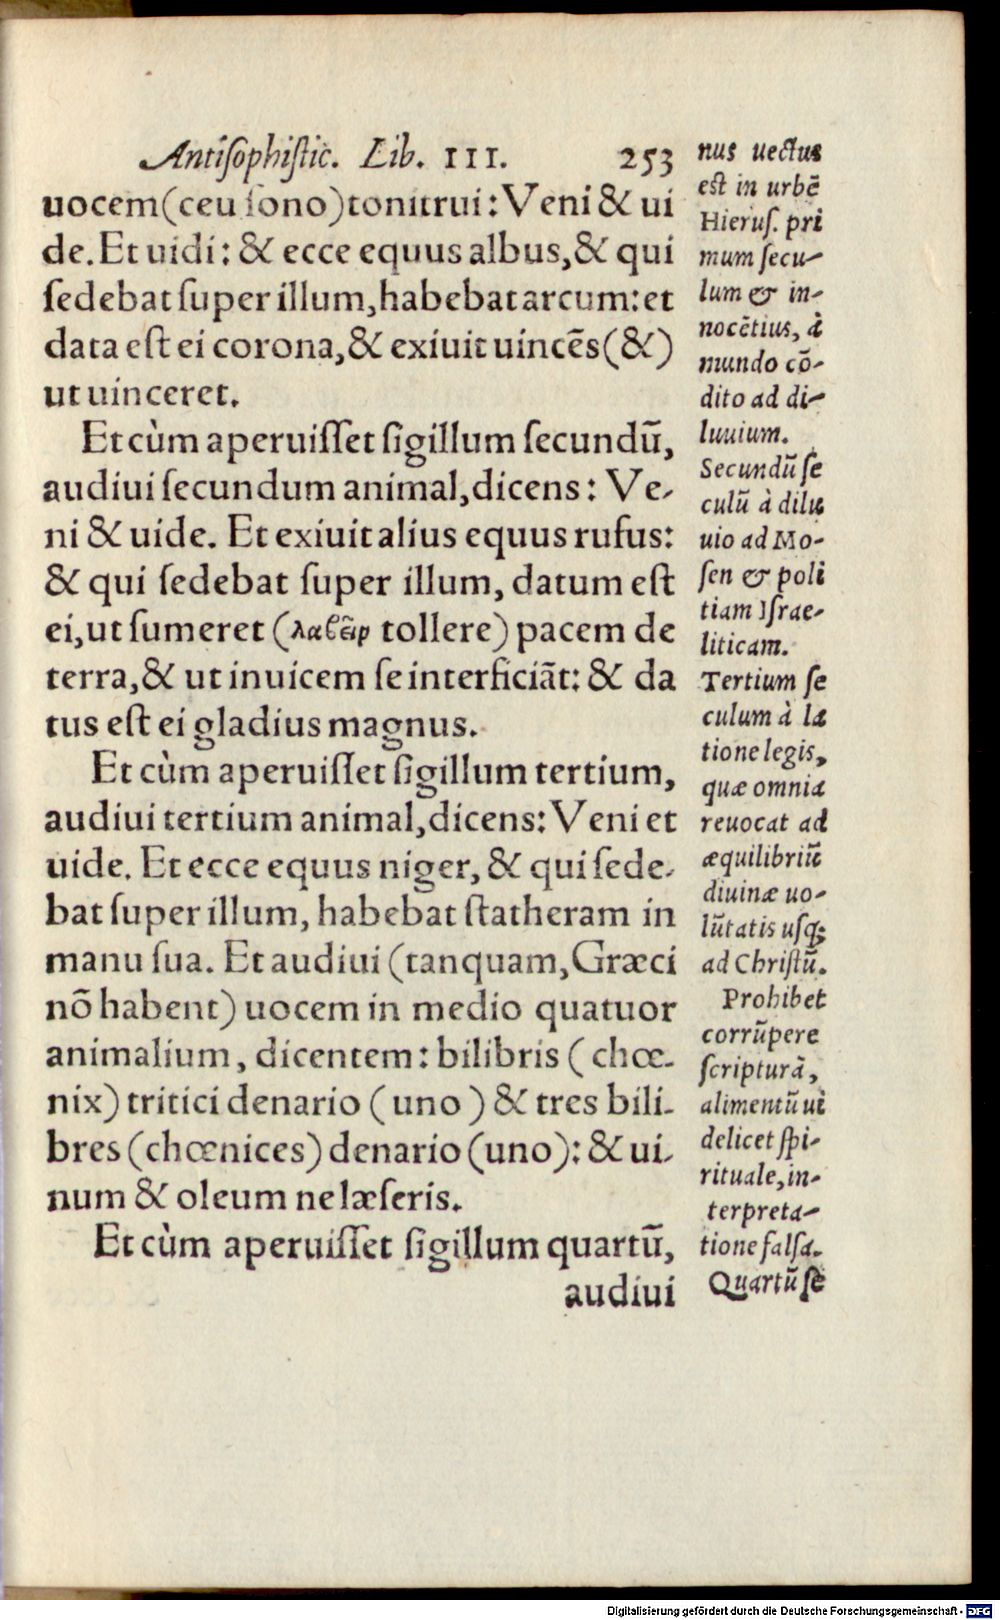 Antiſophiſtic. Lib. III. 253
uocem(ceu ſono)tonitrui: Veni & ui
de. Et uidi: & ecce equus albus, & qui
ſedebat ſuper illum, habebat arcum: et
data eſt ei corona, & exiuit uincēs (&)
ut uinceret.
Et cùm aperuiſſet ſigillum ſecundū,
audiui ſecundum animal, dicens: Ve-
ni & uide. Et exiuit alius equus rufus:
& qui ſedebat ſuper illum, datum eſt
ei, ut ſumeret (λαβεῖν tollere) pacem de
terra, & ut inuicem ſe interficiāt: & da
tus eſt ei gladius magnus.
Et cùm aperuiſſet ſigillum tertium,
audiui tertium animal, dicens: Veni et
uide. Et ecce equus niger, & qui ſede-
bat ſuper illum, habebat ſtatheram in
manu ſua. Et audiui (tanquam, Græci
nō habent) uocem in medio quatuor
animalium, dicentem: bilibris (chœ-
nix) tritici denario (uno) & tres bili-
bres (chœnices) denario (uno): & ui-
num & oleum ne læſeris.
Et cùm aperuiſſet ſigillum quartū,
audiui
nus uectus
eſt in urbē
Hieruſ. pri
mum ſecu-
lum & in-
nocētius, à
mundo cō-
dito ad di-
luuium.
Secundū ſe
culū à dilu
uio ad Mo-
ſen & poli
tiam Iſrae-
liticam.
Tertium ſe
culum à la
tione legis,
quæ omnia
reuocat ad
æquilibriū
diuinæ uo-
lūtatis uſq;
ad Chriſtū.
Prohibet
corrūpere
ſcripturā,
alimentū ui
delicet ſpi-
rituale, in-
terpreta-
tione falſa.
Quartū ſe
Digitalisierung gefördert durch die Deutsche Forschungsgemeinschaft - DFG